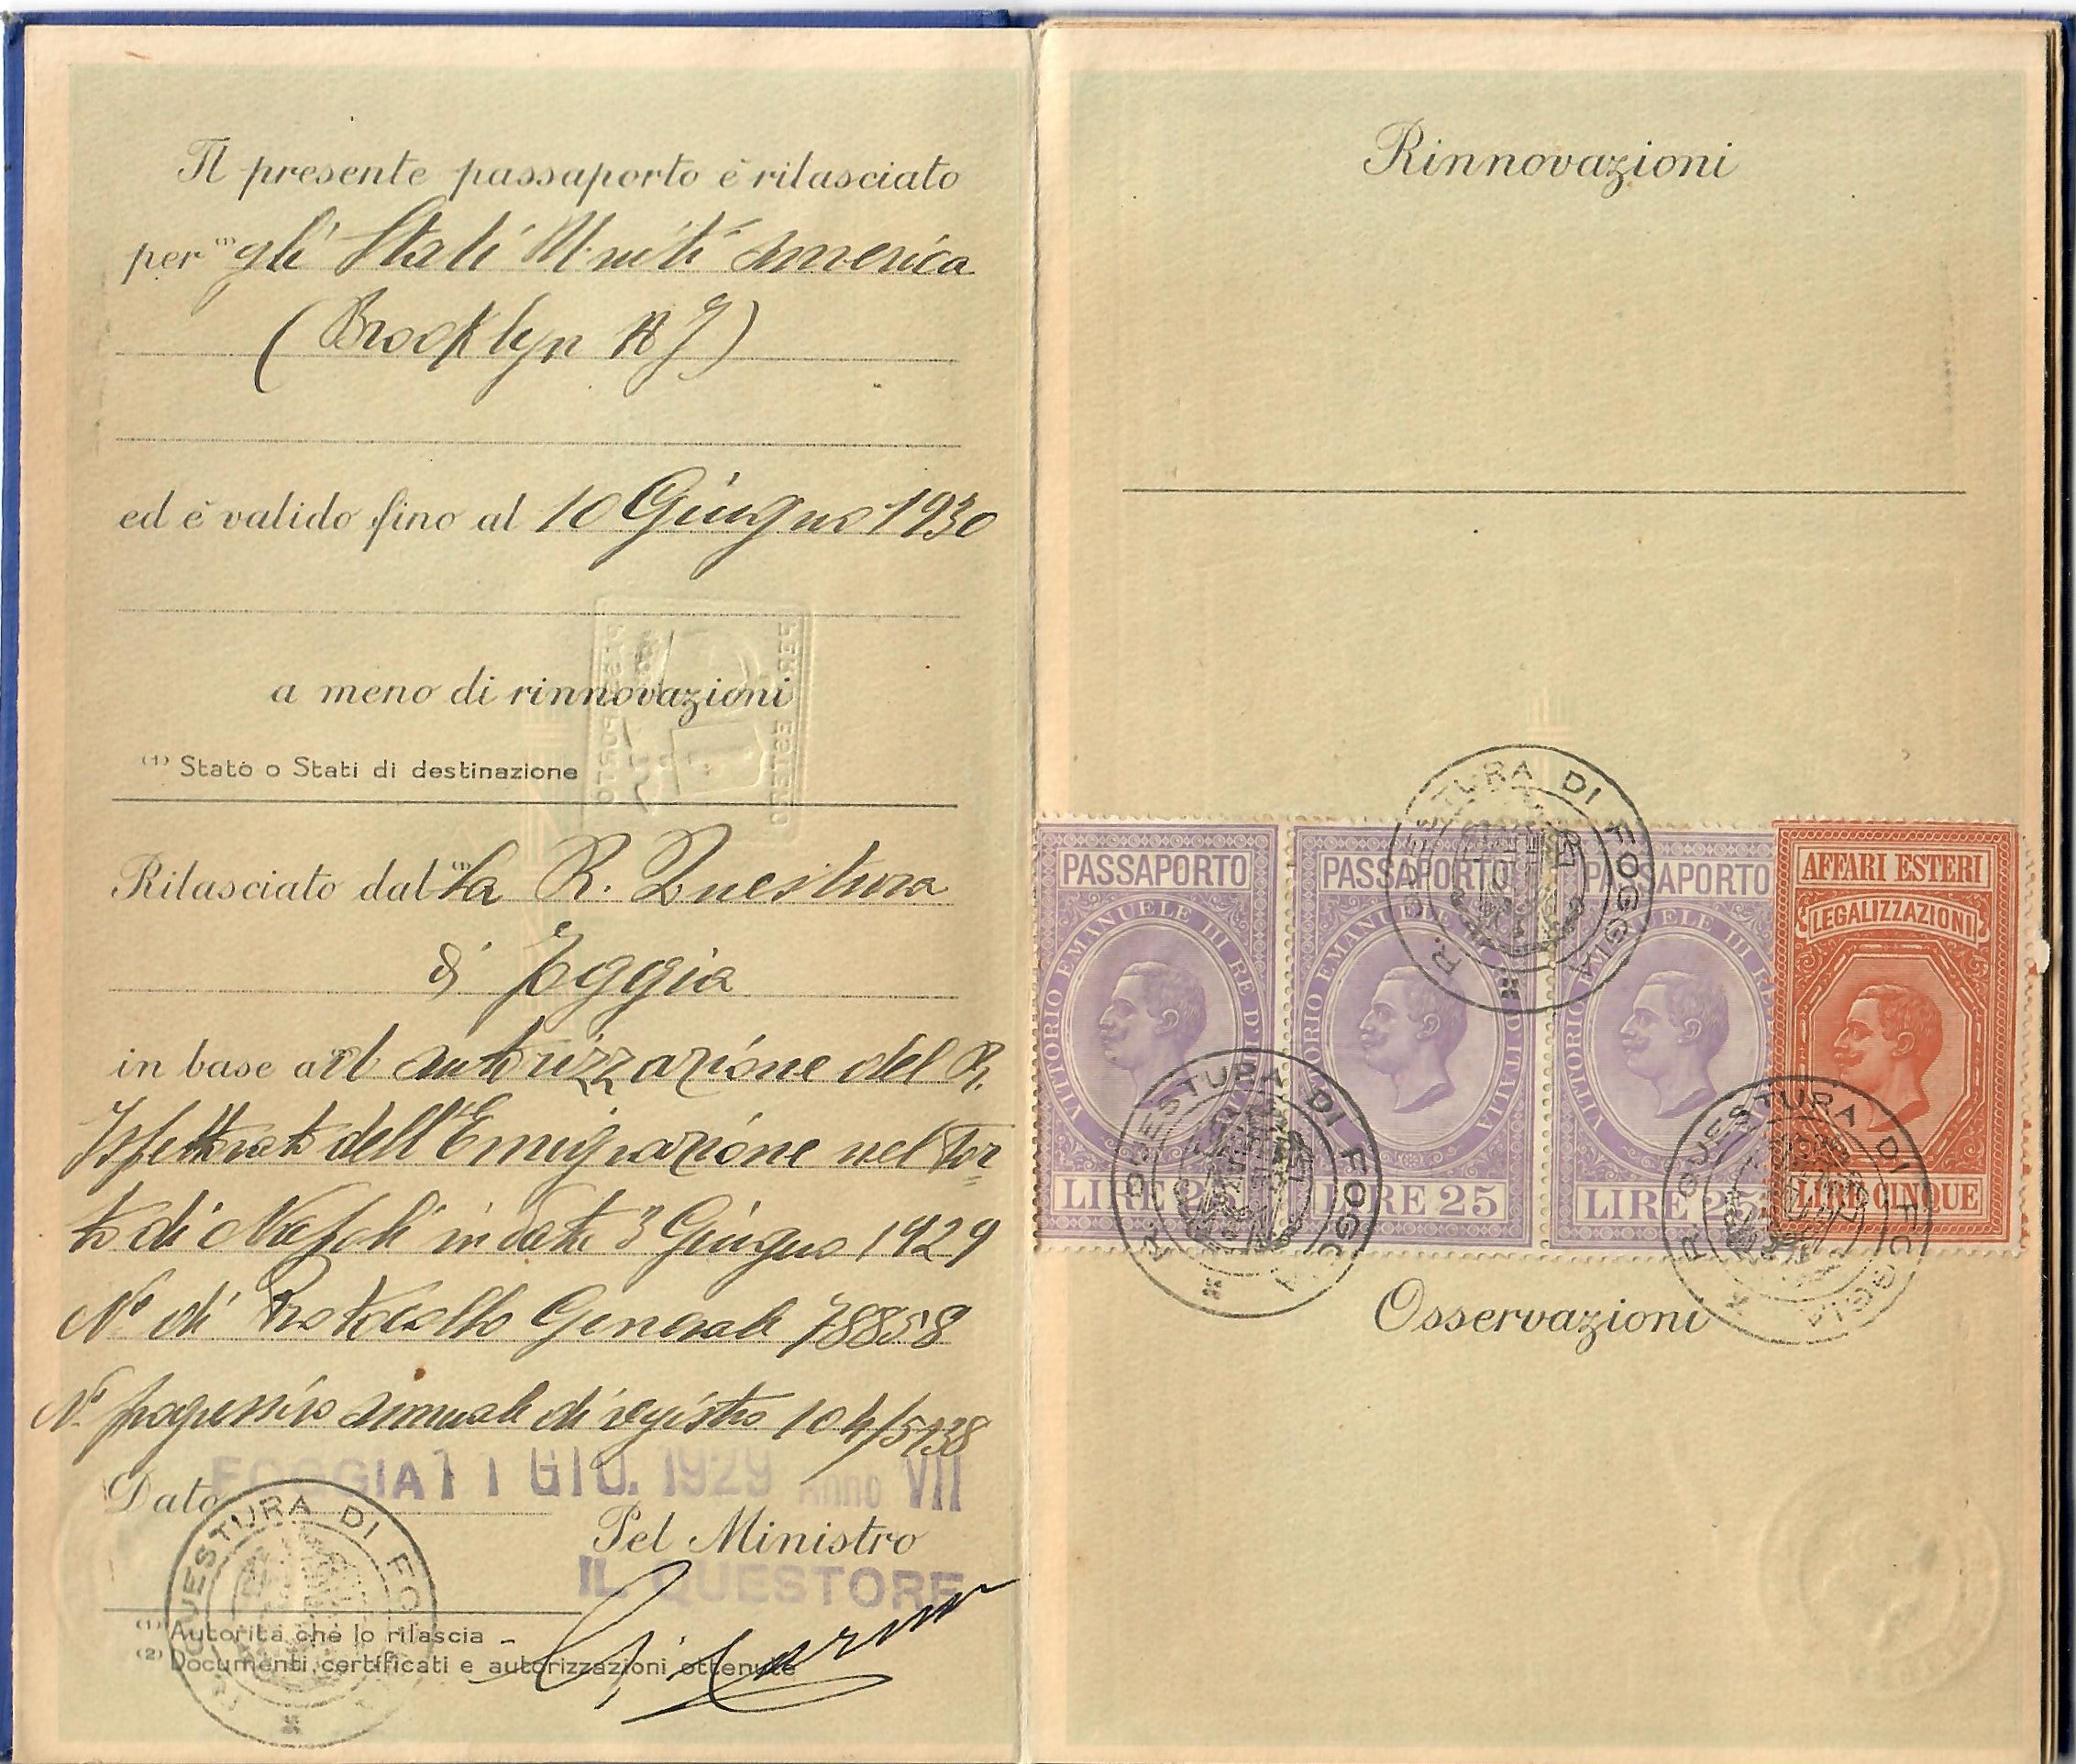 Il presente passaporto è rilasciato
per (1) gli Stati Uniti America
(Brooklyn N J)
ed è valido fino al 10 Giugno 1930
a meno di rinnovazioni
(1) Stato o Stati di destinazione
Rilasciato dal (1) la R. Questura
di Foggia
in base all autorizzazione del R.
Ispettorato dell'Emigrazione nel Por
to di Napoli in data 3 Giugno 1929
N° di Protocollo Generale 78858
N° progressivo annuale di registro 104/5138
FOGGIA 11 GIU. 1929 Anno VII
Dato
Pel Ministro
IL QUESTORE
(1) Autorità che lo rilascia
(2) Documenti, certificati e autorizzazioni ottenute
R. QUESTURA DI FO
PER ESTERO
Rinnovazioni
R. QUESTURA DI FOGGIA
PASSAPORTO
VITTORIO EMANUELE III RE D'ITALIA
LIRE 25
PASSAPORTO
VITTORIO EMANUELE III RE D'ITALIA
LIRE 25
PASSAPORTO
VITTORIO EMANUELE III RE
LIRE 25
AFFARI ESTERI
LEGALIZZAZIONI
LIRE CINQUE
R. QUESTURA DI FOGGIA
R. QUESTURA DI FOGGIA
Osservazioni